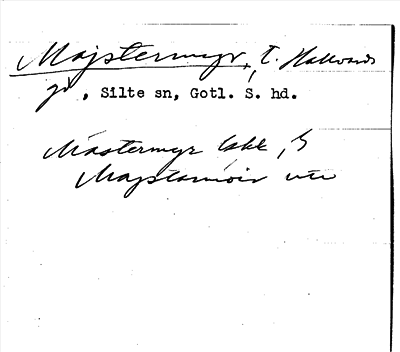 Majstermyr, t. Hallvards
gd, Silte sn, Gotl. S. hd.
Mästermyr
Majstarmöir utr